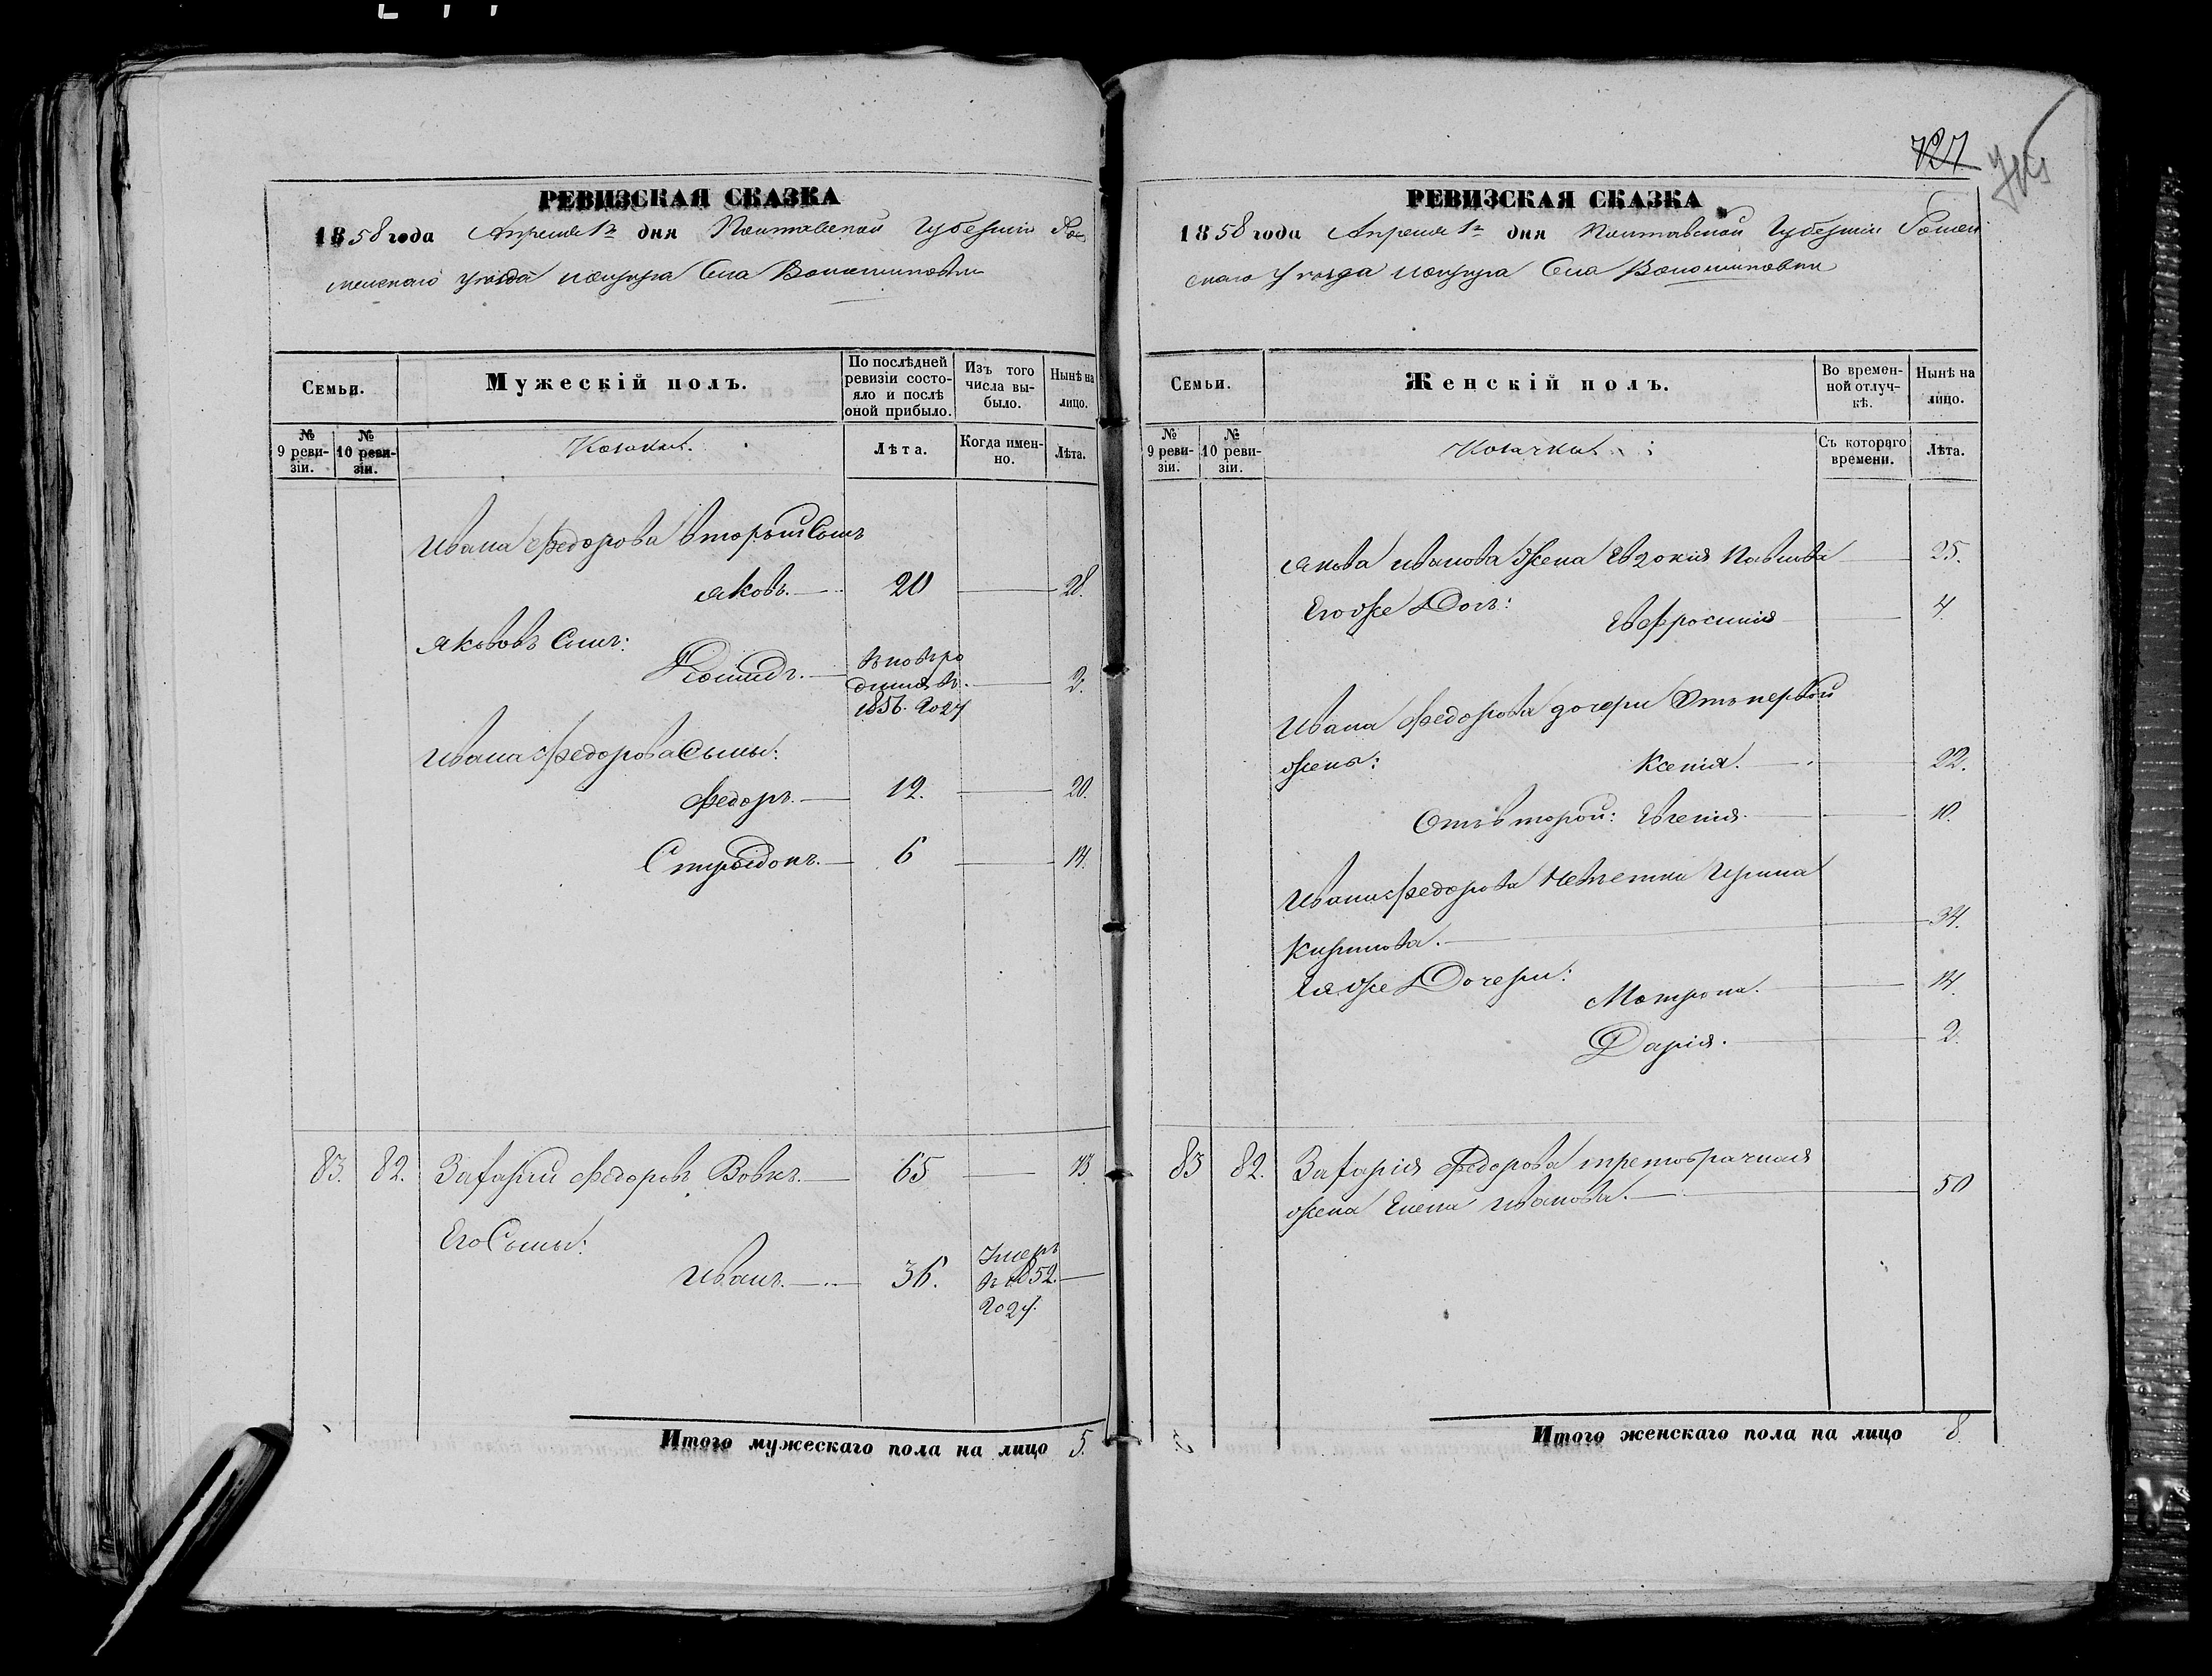 727
РЕВИЗСКАЯ СКАЗКА
1858 года Апреля 1го дня Полтавской Губерніи Ро
менскаго уѣзда Села Волошиновки
Семьи.
Мужескій полъ.
По послѣдней ревизіи состояло и послѣ оной прибыло.
Изъ того числа выбыло.
Нынѣ на лицо.
№ 9 ревизіи.
№ 10 ревизіи.
Козаки.
Лѣта.
Когда именно.
Лѣта.
Ивана Федорова вторый Сынъ
Яковъ. 20 28.
Яковавъ Сынъ:
вновь ро
дился въ 2.
1856. году
Ивана Федорова Сыны:
Федоръ. 12. 20.
Спиридонъ. 6 14.
83. 82. Захарій Федоровъ Вовкъ. 65 73.
Его Сыны:
Иванъ. 36. Умеръ
въ 1852
году.
Итого мужескаго пола на лицо 5.
РЕВИЗСКАЯ СКАЗКА
1858 года Апреля 1го дня Полтавской Губерніи Ромен
скаго уѣзда Села Волошиновки
Семьи.
Женскій полъ.
Во временной отлучкѣ.
Нынѣ на лицо.
№ 9 ревизіи.
№ 10 ревизіи.
Козачки:
Съ котораго времени.
Лѣта.
Якова Иванова жена Евдокия Павлова 25.
Его же Дочь:
Евфросинія 4.
Ивана Федорова дочери Отъ первой
жены: Ксенія. 22.
Отъ второй: Евгенія. 10.
Ивана Федорова Невѣстка Ирина
Кирилова. 34.
Ея же Дочери:
Матрона. 14.
Дарія. 2.
83 82. Захарія Федорова третобрачная
жена Елена Иванова. 50
Итого женскаго пола на лицо 8